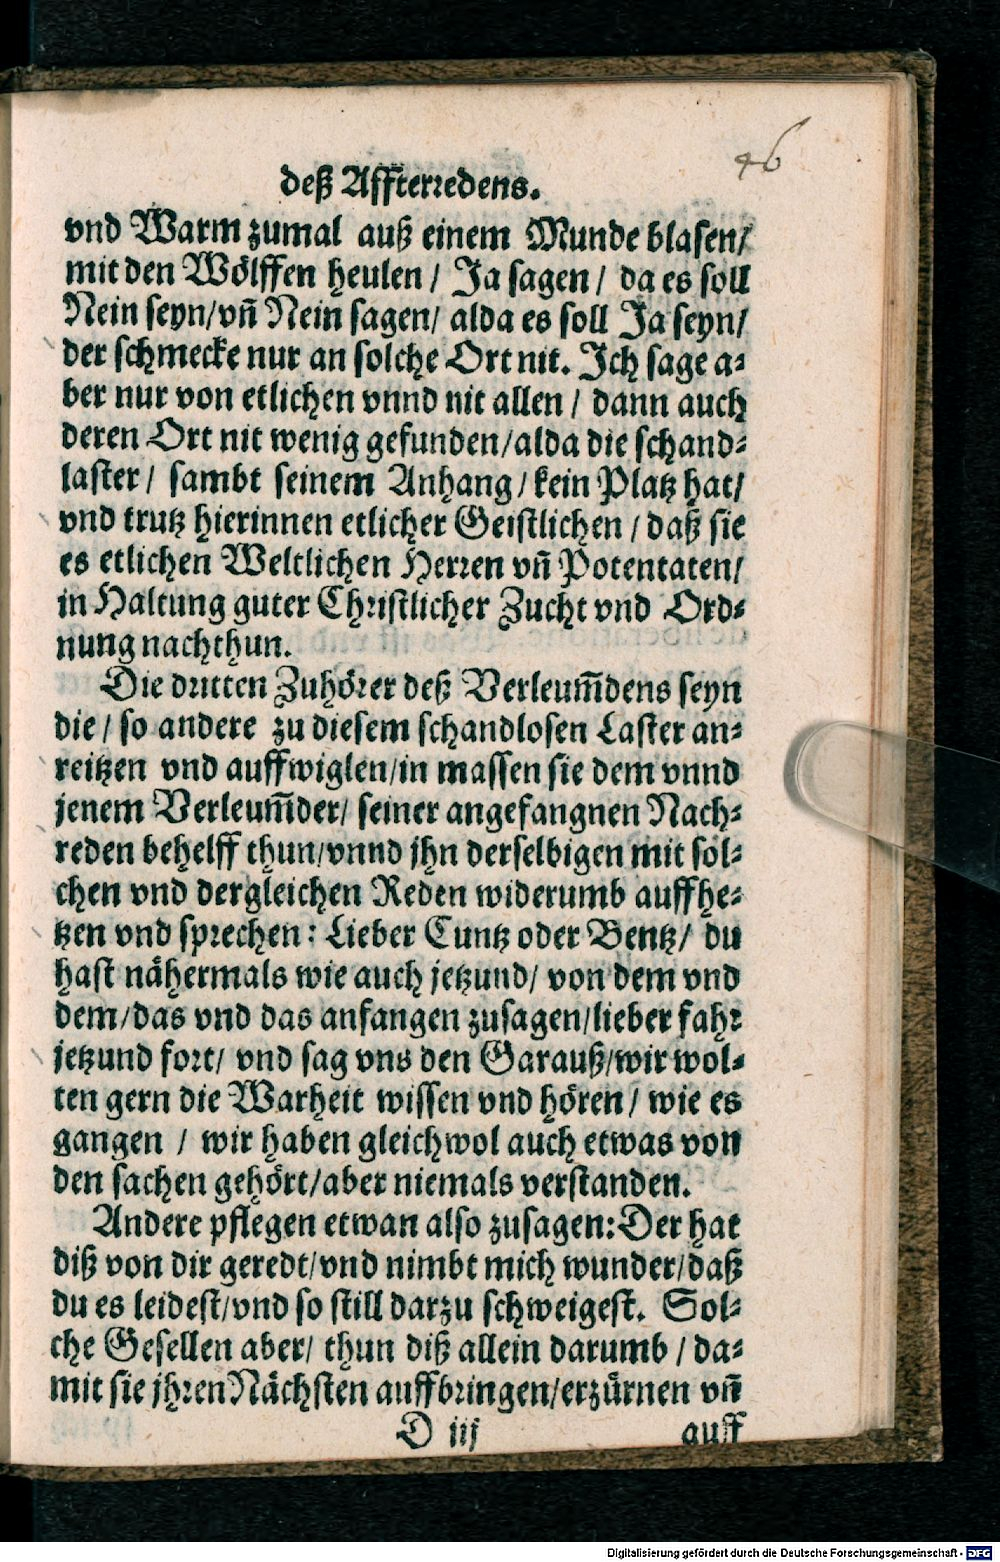 46
deß Affterredens.
vnd Warm zumal auß einem Munde blasen/
mit den Wölffen heulen / Ja sagen / da es soll
Nein seyn/vñ Nein sagen/ alda es soll Ja seyn/
der schmecke nur an solche Ort nit. Ich sage a-
ber nur von etlichen vnnd nit allen / dann auch
deren Ort nit wenig gefunden/alda die schand-
laster / sambt seinem Anhang / kein Platz hat/
vnd trutz hierinnen etlicher Geistlichen / daß sie
es etlichen Weltlichen Herren vñ Potentaten/
in Haltung guter Christlicher Zucht vnd Ord-
nung nachthun.
Die dritten Zuhörer deß Verleum̃dens seyn
die / so andere zu diesem schandlosen Laster an-
reitzen vnd auffwiglen/in massen sie dem vnnd
jenem Verleum̃der/ seiner angefangnen Nach-
reden behelff thun/vnnd jhn derselbigen mit sol-
chen vnd dergleichen Reden widerumb auffhe-
tzen vnd sprechen: Lieber Cuntz oder Bentz/ du
hast nähermals wie auch jetzund/ von dem vnd
dem/das vnd das anfangen zusagen/lieber fahr
jetzund fort/ vnd sag vns den Garauß/wir wol-
ten gern die Warheit wissen vnd hören / wie es
gangen / wir haben gleichwol auch etwas von
den sachen gehört/aber niemals verstanden.
Andere pflegen etwan also zusagen: Der hat
diß von dir geredt/vnd nimbt mich wunder/daß
du es leidest/vnd so still darzu schweigest. Sol-
che Gesellen aber/ thun diß allein darumb / da-
mit sie jhren Nächsten auffbringen/erzürnen vñ
D iij auff
Digitalisierung gefördert durch die Deutsche Forschungsgemeinschaft - DFG